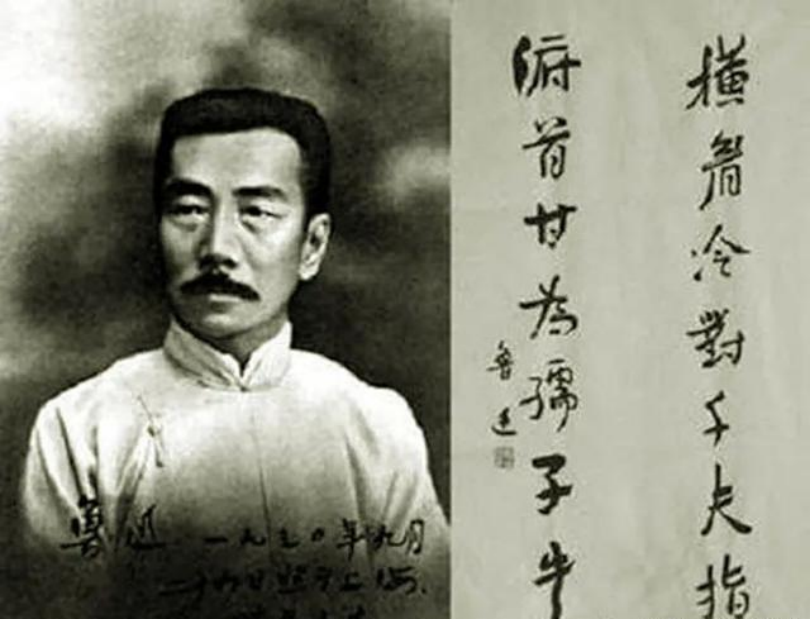 橫眉冷對千夫指
俯首甘為孺子牛
魯迅
魯迅 一九三〇年九月
二十四日照于上海.